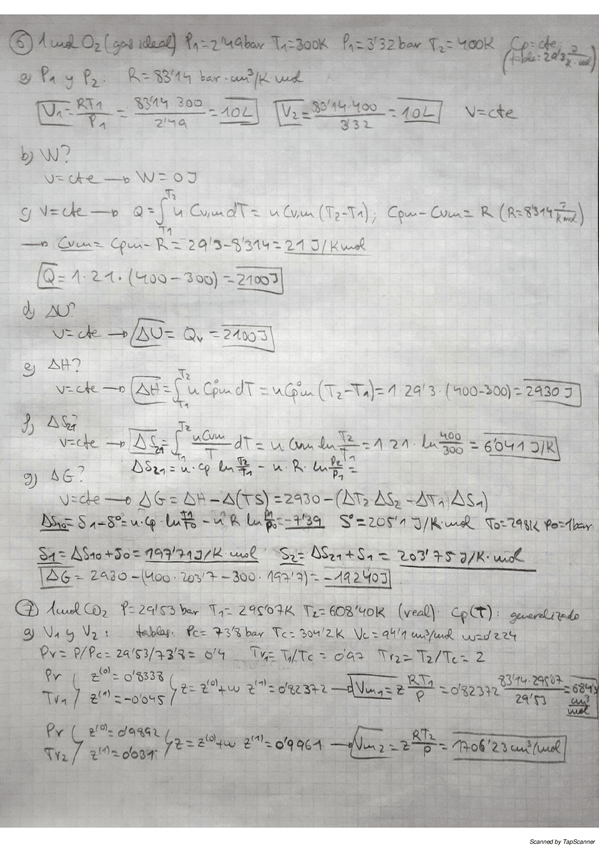 6 1 mol O2 (gas ideal) P1=2'49bar T1=300K P1=3'32 bar T2=400K Cp=cte
(tablas: 29'3 J/K·mol)
a) P1 y P2. R=83'14 bar·cm³/K mol
V1 = RT1/P1 = 83'14·300/2'49 = 10L V2 = 83'14·400/3'32 = 10L V=cte
b) W?
V=cte → W=0J
c) V=cte → Q = ∫T1 T2 n Cvm dT = n Cvm (T2-T1); Cpm-Cvm=R (R=8'314 J/K mol)
→ Cvm = Cpm-R = 29'3-8'314 = 21 J/K mol
Q = 1·21·(400-300) = 2100J
d) ΔU?
V=cte → ΔU = Qv = 2100J
e) ΔH?
V=cte → ΔH = ∫T1 T2 n Cp°m dT = n Cp°m (T2-T1) = 1·29'3·(400-300) = 2930 J
f) ΔS21?
V=cte → ΔS21 = ∫T1 T2 n Cvm/T dT = n Cvm ln T2/T1 = 1·21·ln 400/300 = 6'041 J/K
ΔS21 = n·Cp ln T2/T1 - n·R·ln P2/P1 =
g) ΔG?
V=cte → ΔG = ΔH-Δ(TS) = 2930-(ΔT2 ΔS2 - ΔT1 ΔS1)
ΔS10 = S1-S° = n·Cp·ln T1/T0 - n R ln P1/P0 = -7'39 S°=205'1 J/K·mol T0=298K P0=1bar
S1 = ΔS10+S0 = 197'71 J/K·mol S2 = ΔS21+S1 = 203'75 J/K·mol
ΔG = 2930-(400·203'7-300·197'7) = -19240J
7 1mol CO2 P=29'53 bar T1=295'07K T2=608'40K (real) Cp(T): generalizado
a) V1 y V2: tablas. Pc=73'8 bar Tc=304'2K Vc=94'1 cm³/mol w=0'224
Pr = P/Pc = 29'53/73'8 = 0'4 Tr1 = T1/Tc = 0'97 Tr2 = T2/Tc = 2
Pr Tr1 z(0)=0'8338 z(1)=-0'045 z=z(0)+w z(1)=0'82372 → Vm1 = z RT1/P = 0'82372 83'14·295'07/29'53 = 684'3 cm³/mol
Pr Tr2 z(0)=0'9892 z(1)=0'031 z=z(0)+w z(1)=0'9961 → Vm2 = z RT2/P = 1706'23 cm³/mol
Scanned by TapScanner